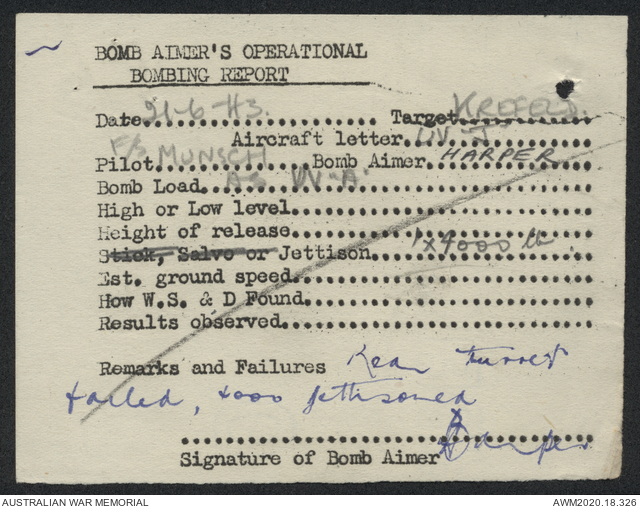 BOMB AIMER'S OPERATIONAL
BOMBING REPORT
Date 21-6-43. Target KREFELD.
Aircraft letter UV J
Pilot F/S MUNSCH Bomb Aimer HARPER
Bomb Load AS
High or Low level
Height of release
Stick, Salvo or Jettison 1x4000 lb
Est. ground speed
How W.S. & D Found
Results observed
Remarks and Failures Rear turret
failed, 4000 jettisoned
Harper
Signature of Bomb Aimer
AUSTRALIAN WAR MEMORIAL
AWM2020.18.326